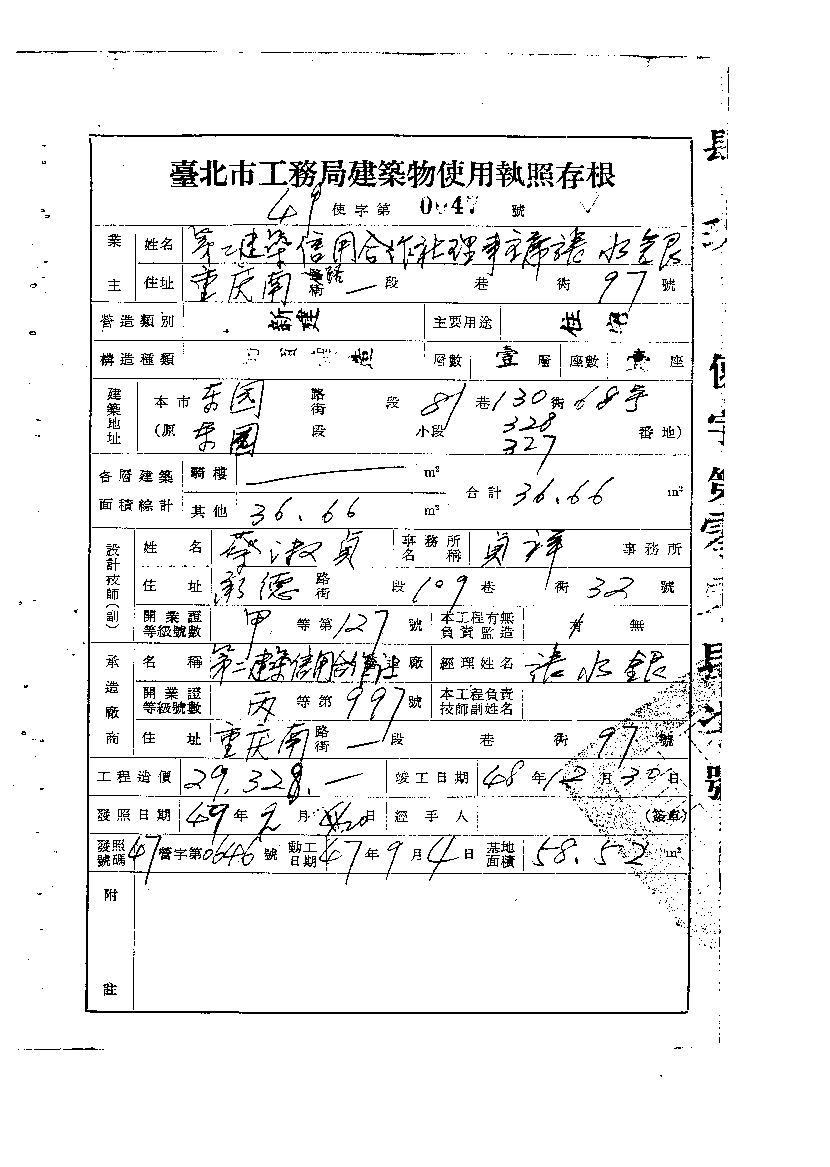 臺北市工務局建築物使用執照存根
使字第 0047 號
業主 姓名 第二建築信用合作社理事主席張水銀
住址 重庆南 路街 一段 巷 街 97 號
營造類別 新建 主要用途 住宅
構造種類 造 層數 壹層 座數 壹座
建築地址 本市 东园 路街 段 81巷 130街 68号
(原 东园 段 小段 328 327 番地)
各層建築面積綜計 騎樓 — m² 合計 36.66 m²
其他 36.66 m²
設計技師(副) 姓名 蔡淑貞 事務所名稱 貞祥 事務所
住址 承德 路街 段 109巷 街 32 號
開業證等級號數 甲 等第 127 號 本工程有無負責監造 有 無
承造廠商 名稱 第二建築信用合作社 廠 經理姓名 張水銀
開業證等級號數 丙 等第 997 號 本工程負責技師副姓名
住址 重庆南 路街 一段 巷 街 97 號
工程造價 29,328.— 竣工日期 48年12月30日
發照日期 49年2月 日 經手人 (簽章)
發照號碼 47 營字第0646號 動工日期 47年9月4日 基地面積 58.52 m²
附註